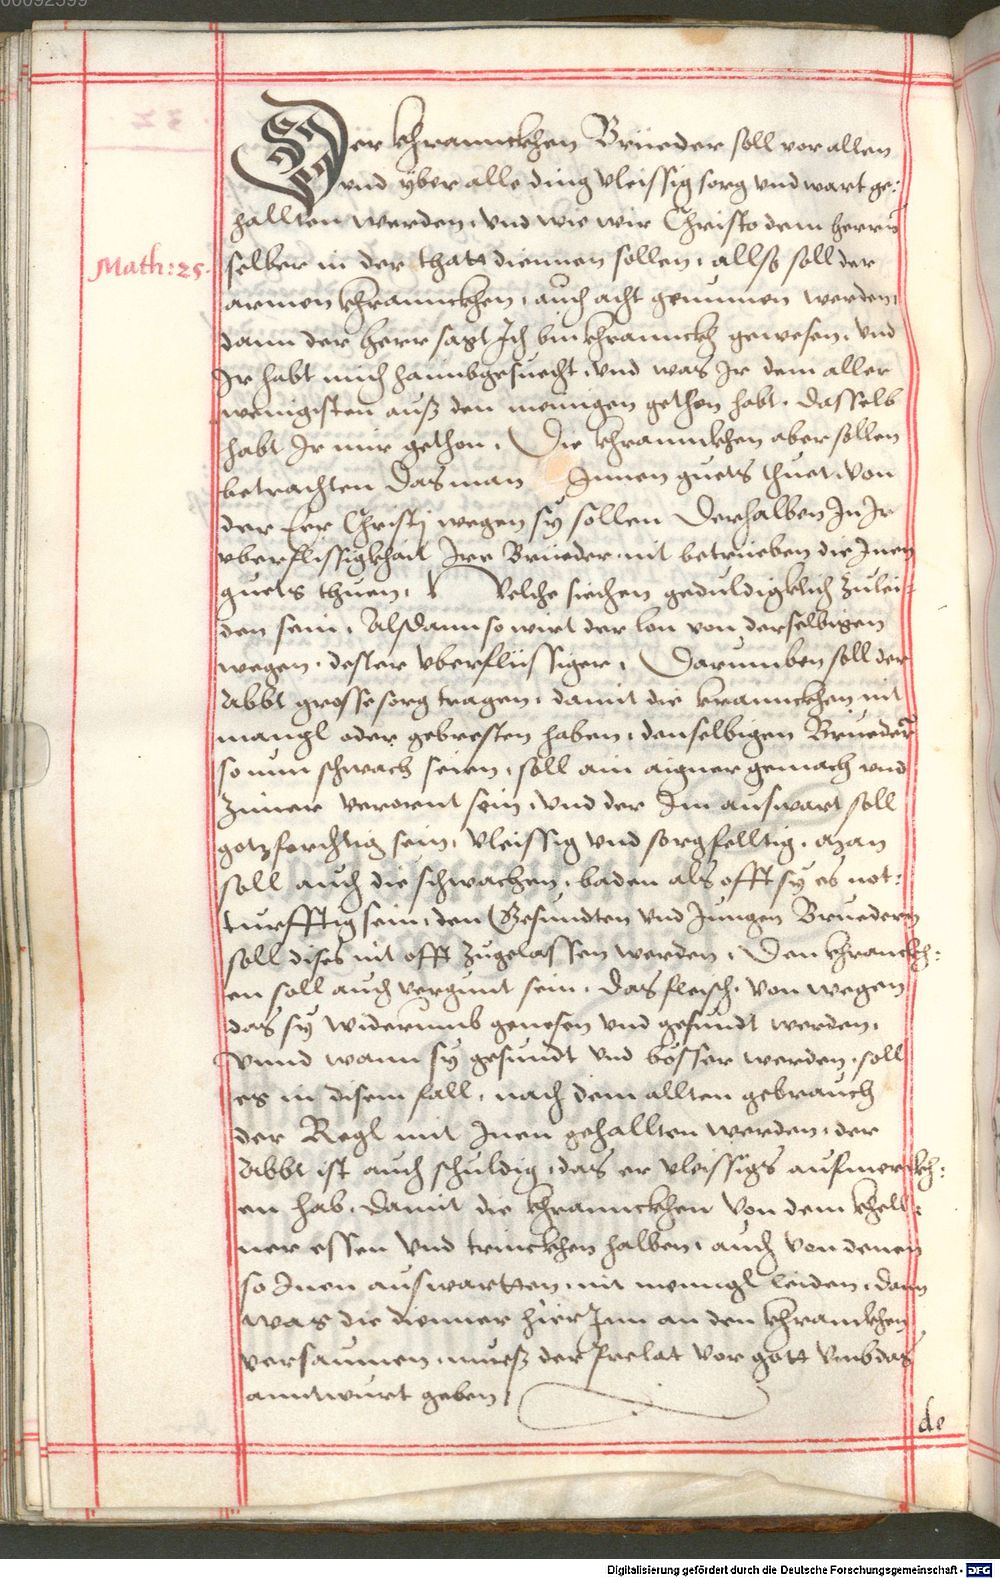 00092599
Der khrannckhen Brüeder soll vor allen
vnd yber alle ding vleissig sorg vnd wart ge:
hallten werden, vnd wie wir Christo dem herrn
Math: 25.
selber in der thatt diennen sollen, allso soll der
armen khrannckhen, auch acht genumen werden,
dann der herr sagt Ich bin khrannckh gewesen, vnd
Ir habt mich haimbgesuecht, vnd was Ir dem aller
wenigisten auß den meinigen gethon habt, dasselb
habt Ir mir gethon. Die khrannckhen aber sollen
betrachten das man Innen guets thuet, von
der Eer Christj wegen sy sollen derhalben In Ir
vberflissigkhait Ire Brüeder nit betrüeben die Inen
guets thuen, Welche siechen geduldigklich zuleí:
den sein, Alsdann so wirt der lon von derselbigen
wegen, dester vberflüssiger, Darumben soll der
Abbt grosse sorg tragen, damit die krannckhen nit
mangl oder gebresten haben, denselbigen Brüeder
so nun schwach seien, soll ain aigner gemach vnd
Zimer verornt sein, vnd der Im auswart soll
gotzforchtig sein, vleissig vnd sorgfelltig, man
soll auch die schwachen, baden als offt sy es not:
turfftig sein, den Gesundten vnd Jungen Bruedern
soll dises nit offt zugelassen werden, Den khranckh:
en soll auch vergunt sein, das fleisch, von wegen
das sy widerumb genesen vnd gesundt werden,
Vnnd wann sy gesundt vnd bösser werden, soll
es in disem fall, nach dem allten gebrauch
der Regl mit Inen gehallten werden, der
Abbt ist auch schuldig, das er vleissigs aufmerckh:
en hab, damit die khrannckhen von dem khell:
ner essen vnd trinckhen halben, auch von denen
so Inen auswartten, nit menngl leiden, dann
was die diener hier Inn an den khranckhen
versaumen, mueß der Prelat vor gott vmb das
anntwurt geben,
de
Digitalisierung gefördert durch die Deutsche Forschungsgemeinschaft - DFG